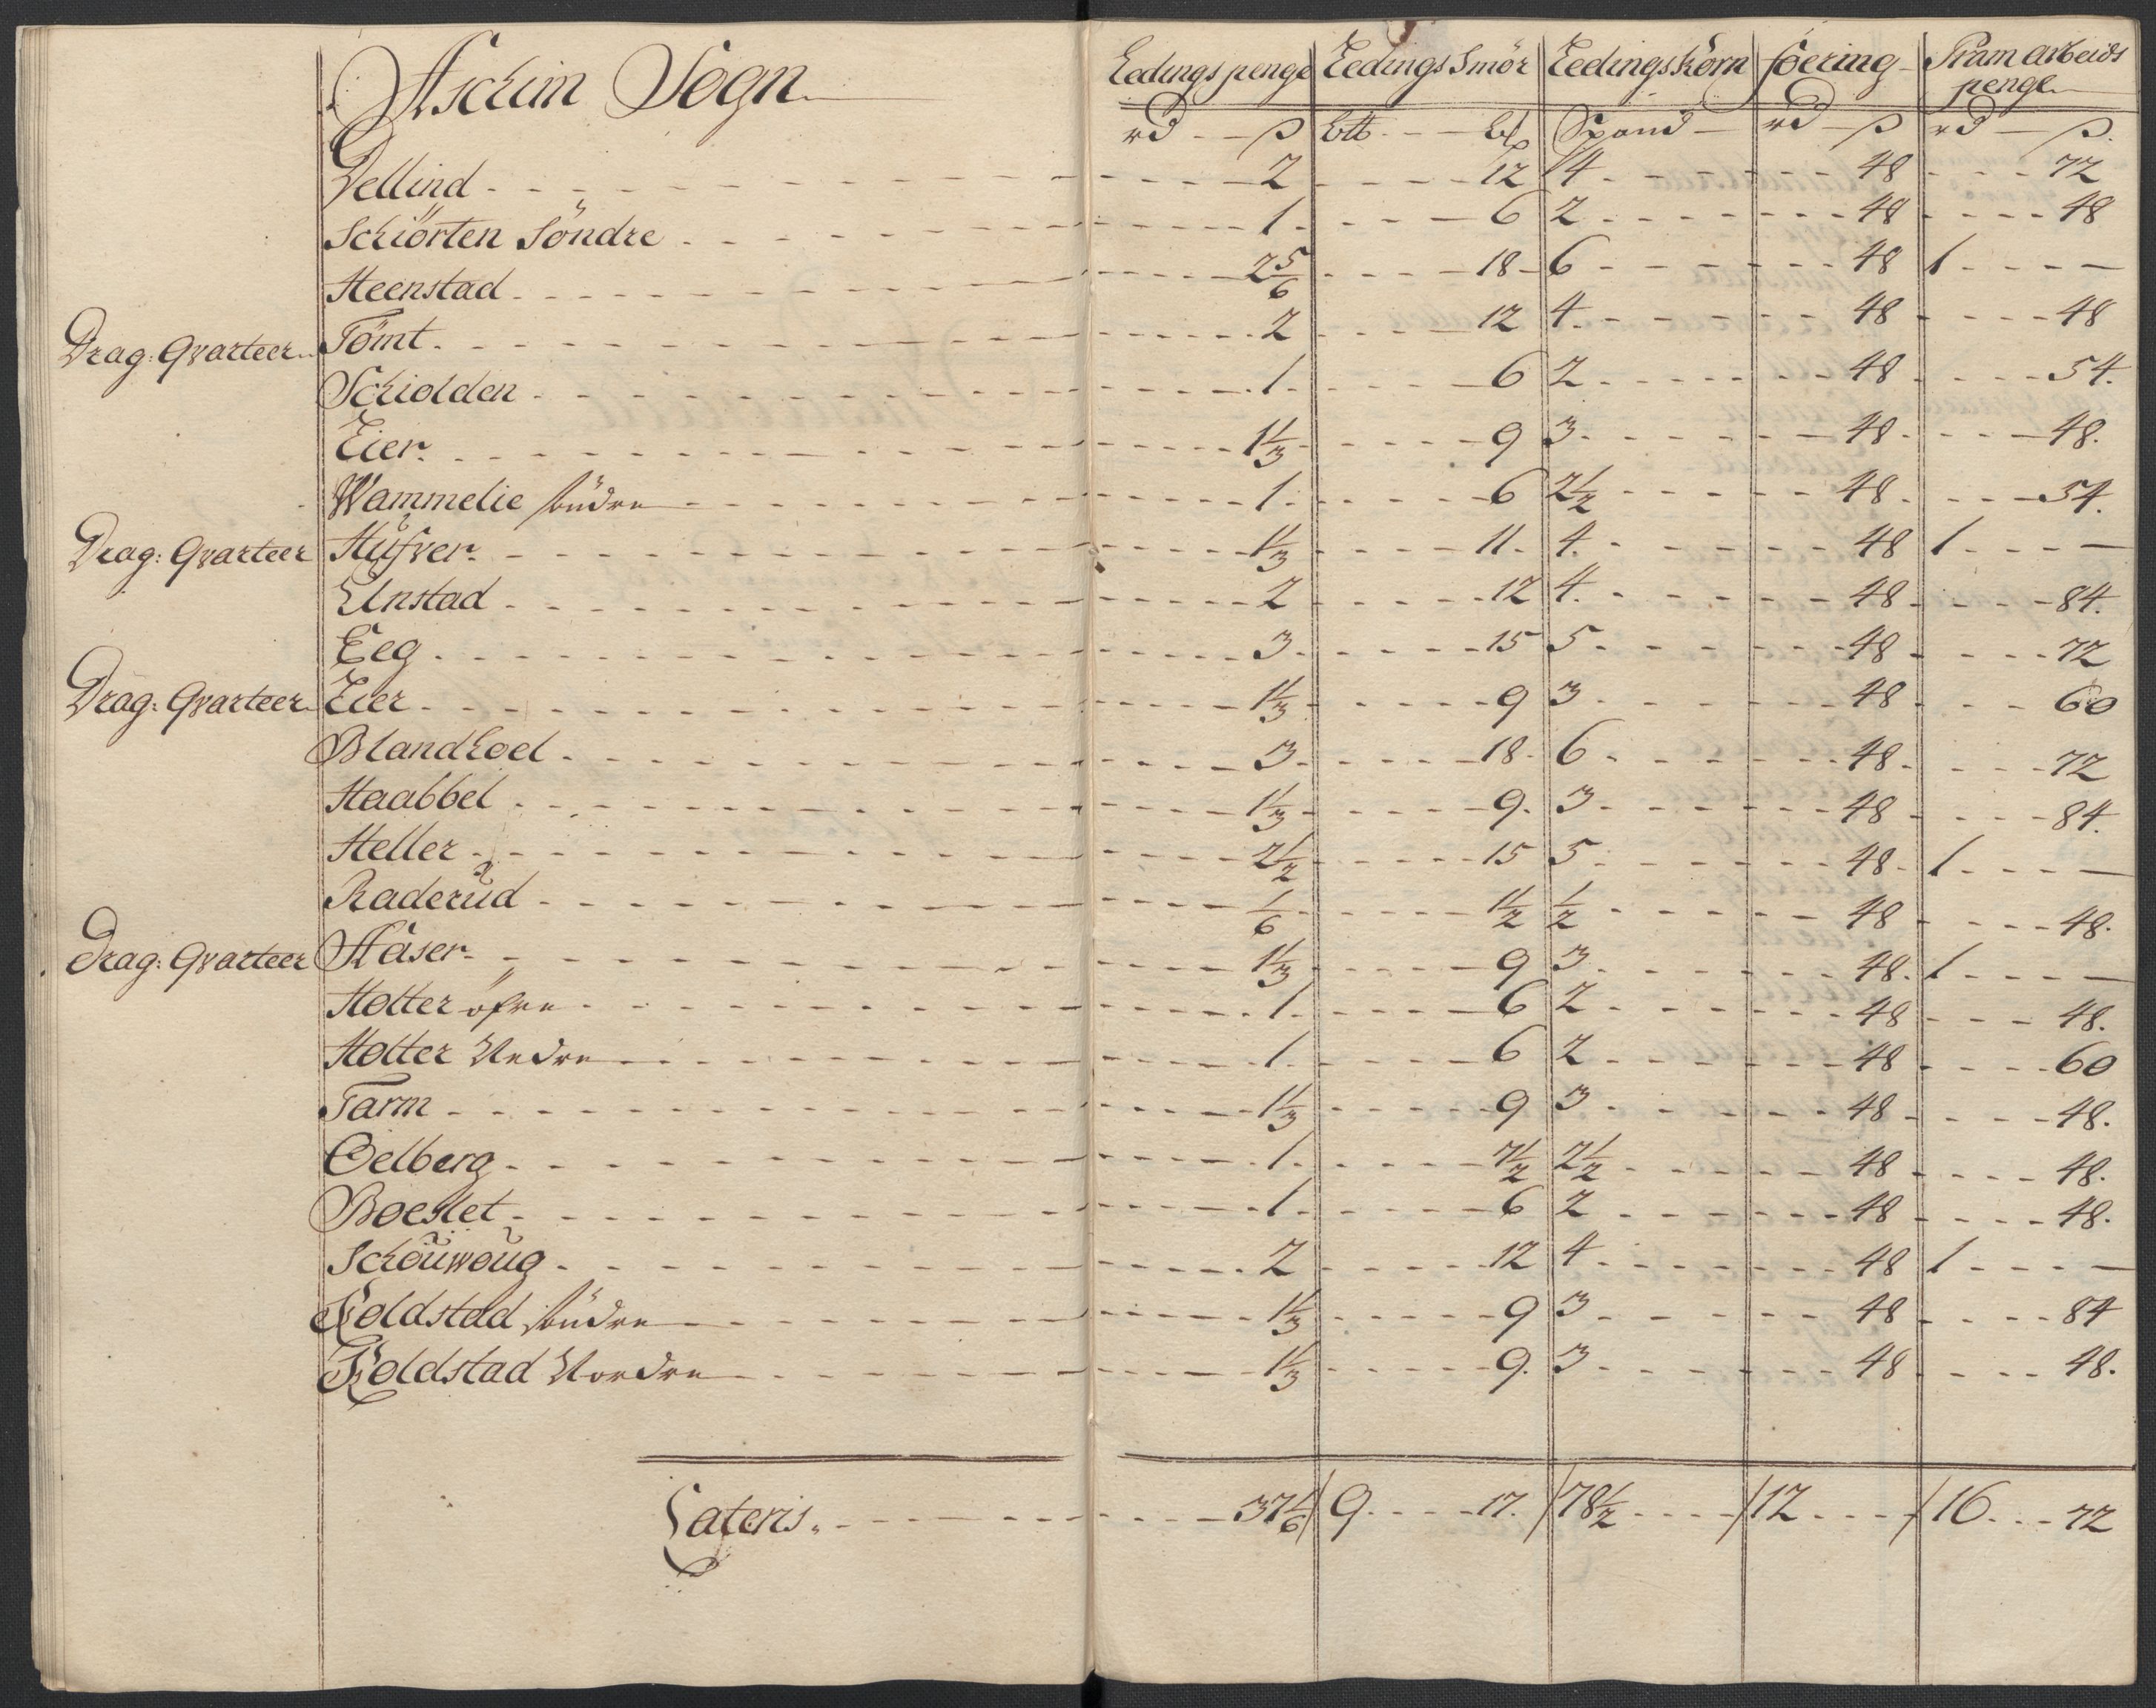 Aschim Sogn Ledings penge Ledings Smör Ledings Korn foering Pram arbeids
penge
rd ß btt b℔ Spand rd ß rd ß
Dellind 2 12 4 48 72
Schiörten Söndre 1 6 2 48 48
Heenstad 2 5/6 18 6 48 1
Drag: Qvarteer Tömt 2 12 4 48 48
Schiolden 1 6 2 48 54
Eier 1 1/3 9 3 48 48
Wammelie söndre 1 6 2 1/2 48 54
Drag: Qvarteer Hüfver 1 1/3 11 4 48 1
Unstad 2 12 4 48 84
Eeg 3 15 5 48 72
Drag: Qvarteer Eier 1 1/3 9 3 48 60
Blandhoel 3 18 6 48 72
Haabbel 1 1/3 9 3 48 84
Heller 2 1/2 15 5 48 1
Raderud 1/6 1 1/2 1/2 48 48
Drag: Qvarteer Haser 1 1/3 9 3 48 1
Holter öfre 1 6 2 48 48
Holter Nedre 1 6 2 48 60
Farm 1 1/3 9 3 48 48
Oelberg 1 7 1/2 2 1/2 48 48
Boeslet 1 6 2 48 48
Schouwoug 2 12 4 48 1
Koldstad söndre 1 1/3 9 3 48 84
Koldstad Nordre 1 1/3 9 3 48 48
Lateris 37 1/6 9 17 78 1/2 12 16 72